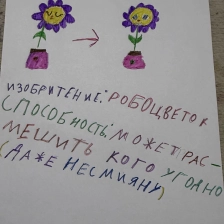 ИЗОБРИТЕНИЕ: РОБОЦВЕТОК
СПОСОБНОСТЬ: МОЖЕТ РАС-
МЕШИТЬ КОГО УГОДНО
(ДАЖЕ НЕСМИЯНУ)